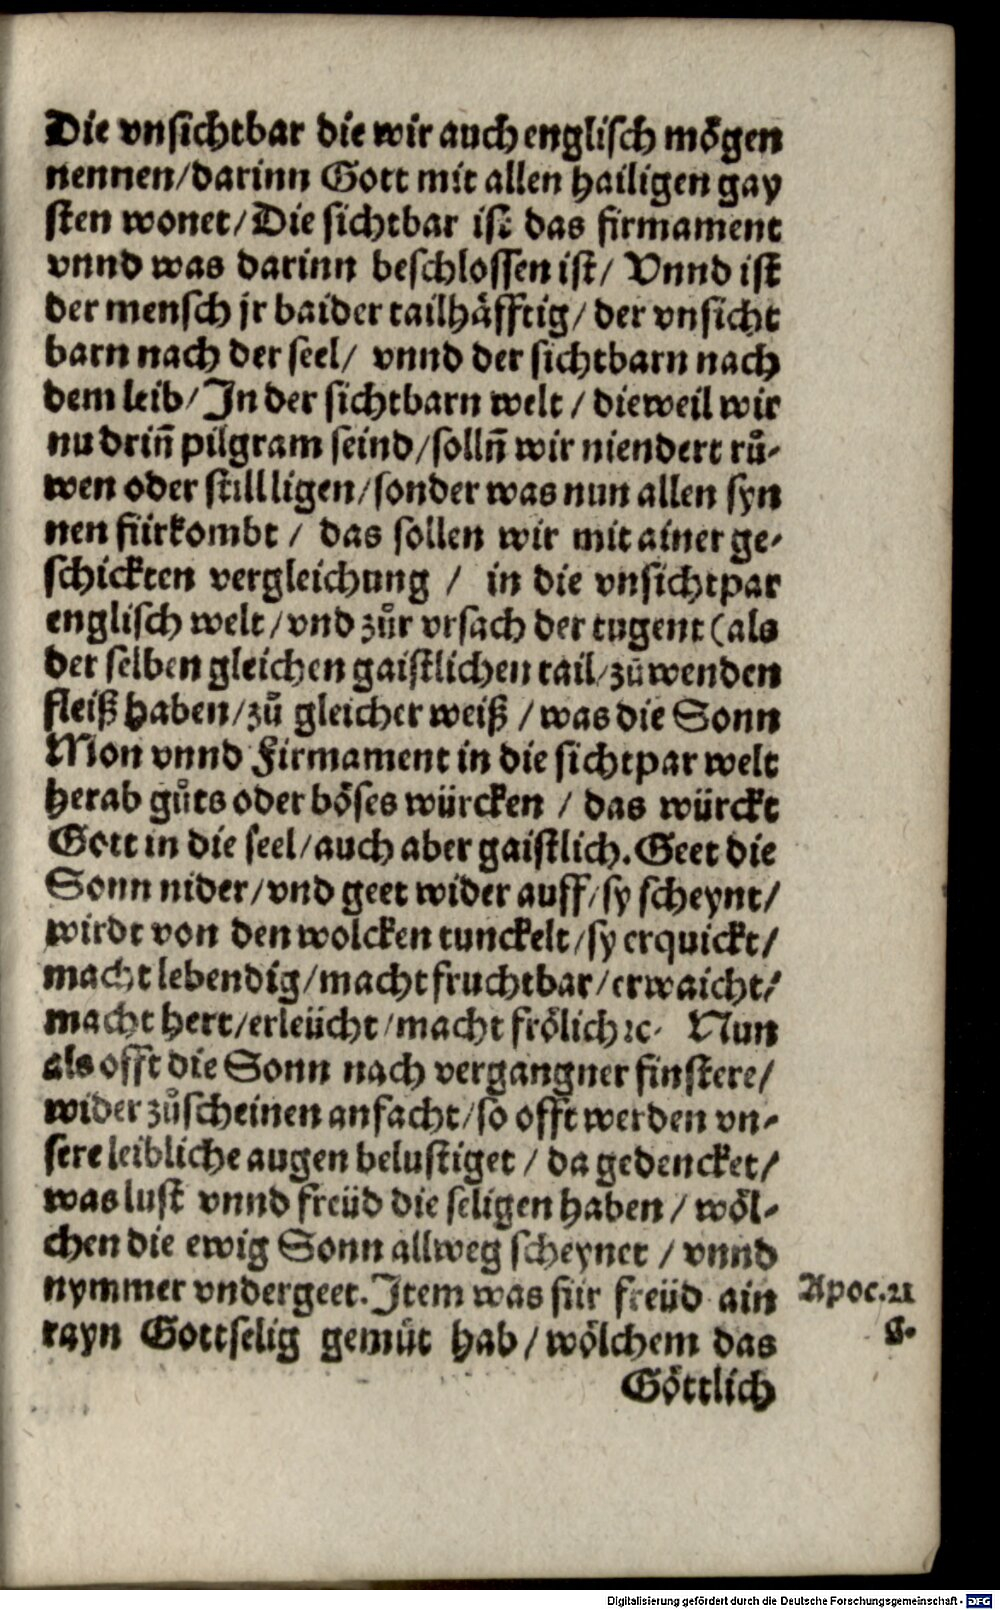 Die vnsichtbar die wir auch englisch mögen
nennen/darinn Gott mit allen hailigen gay
sten wonet/Die sichtbar ist das firmament
vnnd was darinn beschlossen ist/ Vnnd ist
der mensch jr baider tailhäfftig/ der vnsicht
barn nach der seel/ vnnd der sichtbarn nach
dem leib/In der sichtbarn welt / dieweil wir
nu driñ pilgram seind/sollñ wir niendert rů-
wen oder still ligen/sonder was nun allen syn
nen fürkombt / das sollen wir mit ainer ge-
schickten vergleichung / in die vnsichtpar
englisch welt/vnd zůr vrsach der tugent (als
der selben gleichen gaistlichen tail/zů wenden
fleiß haben/zů gleicher weiß / was die Sonn
Mon vnnd Firmament in die sichtpar welt
herab gůts oder böses würcken / das würckt
Gott in die seel/auch aber gaistlich. Geet die
Sonn nider/vnd geet wider auff/sy scheynt/
wirdt von den wolcken tunckelt/sy erquickt/
macht lebendig/macht fruchtbar/erwaicht/
macht hert/erleücht/macht frölich ꝛc. Nun
als offt die Sonn nach vergangner finstere/
wider zůscheinen anfacht/so offt werden vn-
sere leibliche augen belustiget / da gedencket/
was lust vnnd freüd die seligen haben / wöl-
chen die ewig Sonn allweg scheynet / vnnd
nymmer vndergeet. Item was für freüd ain
rayn Gottselig gemůt hab / wölchem das
Göttlich
Apoc. 21
g.
Digitalisierung gefördert durch die Deutsche Forschungsgemeinschaft - DFG